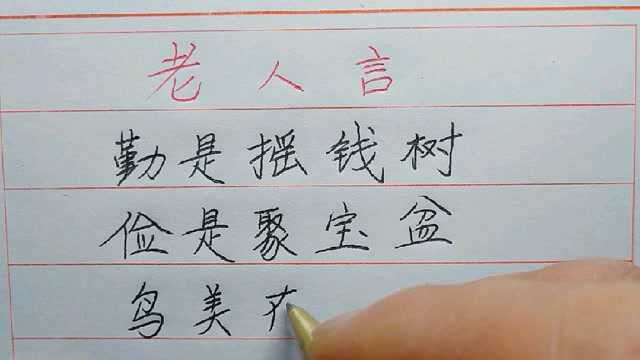 老人言
勤是摇钱树
俭是聚宝盆
鸟美